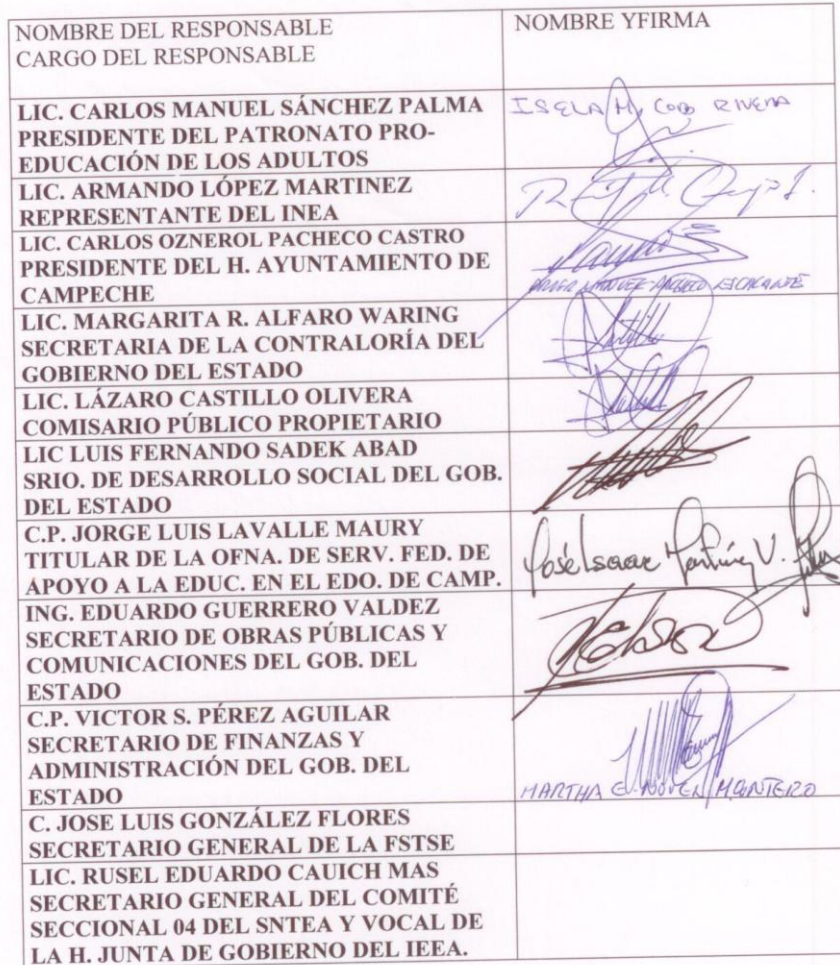 NOMBRE DEL RESPONSABLE
CARGO DEL RESPONSABLE
NOMBRE YFIRMA
LIC. CARLOS MANUEL SÁNCHEZ PALMA
PRESIDENTE DEL PATRONATO PRO-
EDUCACIÓN DE LOS ADULTOS
ISELA M. COBO RIVERA
LIC. ARMANDO LÓPEZ MARTINEZ
REPRESENTANTE DEL INEA
LIC. CARLOS OZNEROL PACHECO CASTRO
PRESIDENTE DEL H. AYUNTAMIENTO DE
CAMPECHE
MANUEL ESCALANTE
LIC. MARGARITA R. ALFARO WARING
SECRETARIA DE LA CONTRALORÍA DEL
GOBIERNO DEL ESTADO
LIC. LÁZARO CASTILLO OLIVERA
COMISARIO PÚBLICO PROPIETARIO
LIC LUIS FERNANDO SADEK ABAD
SRIO. DE DESARROLLO SOCIAL DEL GOB.
DEL ESTADO
C.P. JORGE LUIS LAVALLE MAURY
TITULAR DE LA OFNA. DE SERV. FED. DE
APOYO A LA EDUC. EN EL EDO. DE CAMP.
José Isaac Martínez V.
ING. EDUARDO GUERRERO VALDEZ
SECRETARIO DE OBRAS PÚBLICAS Y
COMUNICACIONES DEL GOB. DEL
ESTADO
C.P. VICTOR S. PÉREZ AGUILAR
SECRETARIO DE FINANZAS Y
ADMINISTRACIÓN DEL GOB. DEL
ESTADO
MARTHA E. MONTERO
C. JOSE LUIS GONZÁLEZ FLORES
SECRETARIO GENERAL DE LA FSTSE
LIC. RUSEL EDUARDO CAUICH MAS
SECRETARIO GENERAL DEL COMITÉ
SECCIONAL 04 DEL SNTEA Y VOCAL DE
LA H. JUNTA DE GOBIERNO DEL IEEA.